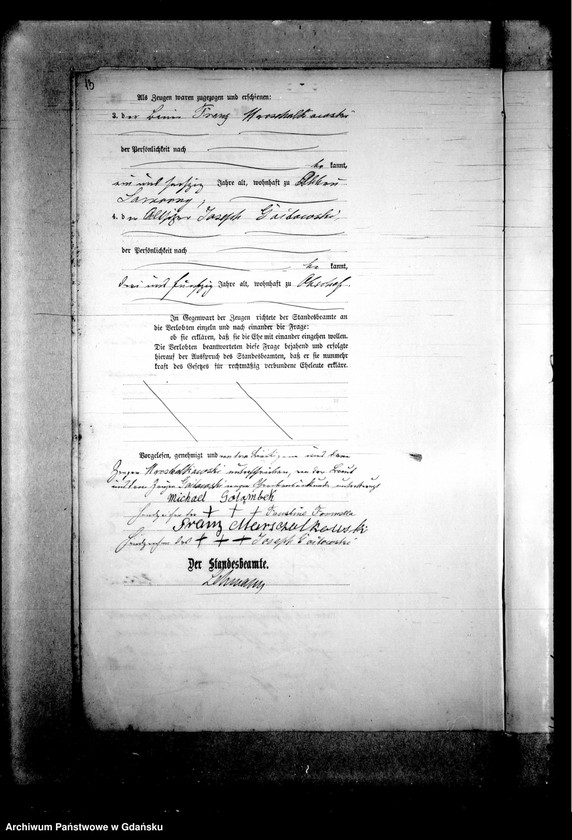 Als Zeugen waren zugezogen und erschienen:
3. der Franz Marschalkowski
der Persönlichkeit nach
be kannt,
ein und sechzig Jahre alt, wohnhaft zu Abbau
4. der Altsitzer Joseph
der Persönlichkeit nach
be kannt,
drei und fünfzig Jahre alt, wohnhaft zu
In Gegenwart der Zeugen richtete der Standesbeamte an
die Verlobten einzeln und nach einander die Frage:
ob sie erklären, daß sie die Ehe mit einander eingehen wollen.
Die Verlobten beantworteten diese Frage bejahend und erfolgte
hierauf der Ausspruch des Standesbeamten, daß er sie nunmehr
kraft des Gesetzes für rechtmäßig verbundene Eheleute erkläre.
Vorgelesen, genehmigt und von dem Bräutigam und dem
Zeugen Marschalkowski unterschrieben, von der Braut
und dem Zeugen wegen Schreibensunkunde unterkreuzt
Michael Golombek
Handzeichen der + + + Faustine Formella
Franz Marszolkowski
Handzeichen des + + + Joseph
Der Standesbeamte.
Lehmann
Archiwum Państwowe w Gdańsku